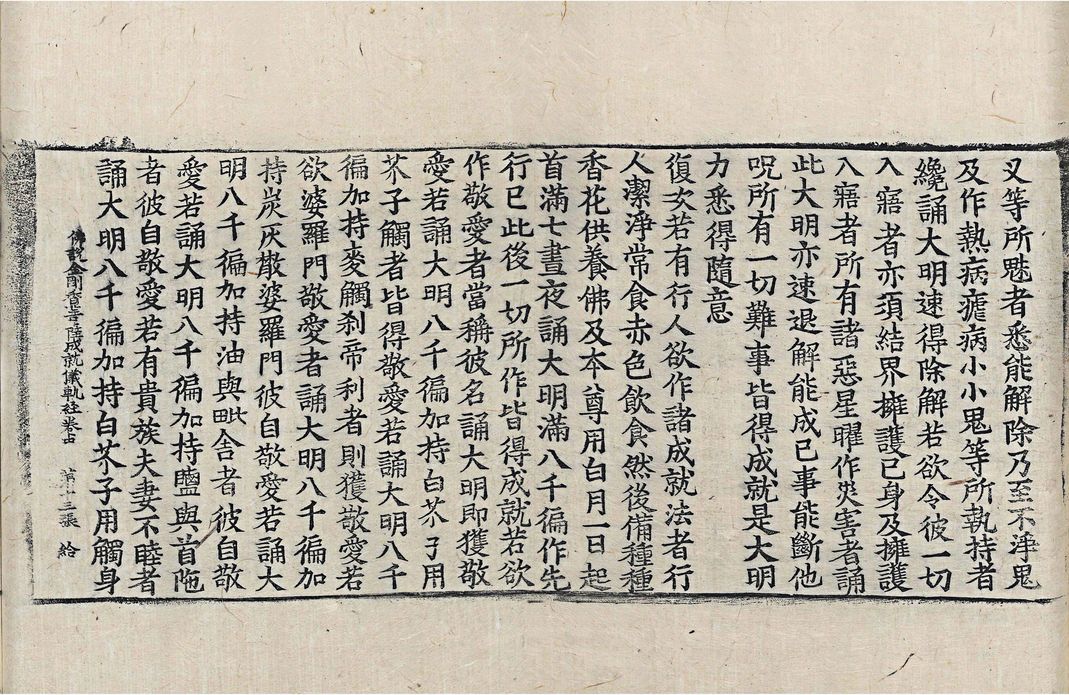 叉等所魅者悉能解除乃至不淨鬼
及作熱病瘧病小小鬼等所執持者
纔誦大明速得除解若欲令彼一切
入寤者亦須結界擁護已身及擁護
入寤者所有諸惡星曜作災害者誦
此大明亦速退解能成已事能斷他
呪所有一切難事皆得成就是大明
力悉得隨意
復次若有行人欲作諸成就法者行
人潔淨常食赤色飲食然後備種種
香花供養佛及本尊用白月一日起
首滿七晝夜誦大明滿八千徧作先
行已此後一切所作皆得成就若欲
作敬愛者當稱彼名誦大明即獲敬
愛若誦大明八千徧加持白芥子用
芥子觸者皆得敬愛若誦大明八千
徧加持麥觸刹帝利者則獲敬愛若
欲婆羅門敬愛者誦大明八千徧加
持炭灰擲婆羅門彼自敬愛若誦大
明八千徧加持油與毗舍者彼自敬
愛若誦大明八千徧加持鹽與首陁
者彼自敬愛若有貴族夫妻不睦者
佛說金剛香菩薩成就儀軌經卷上 第十三張 給
誦大明八千徧加持白芥子用觸身